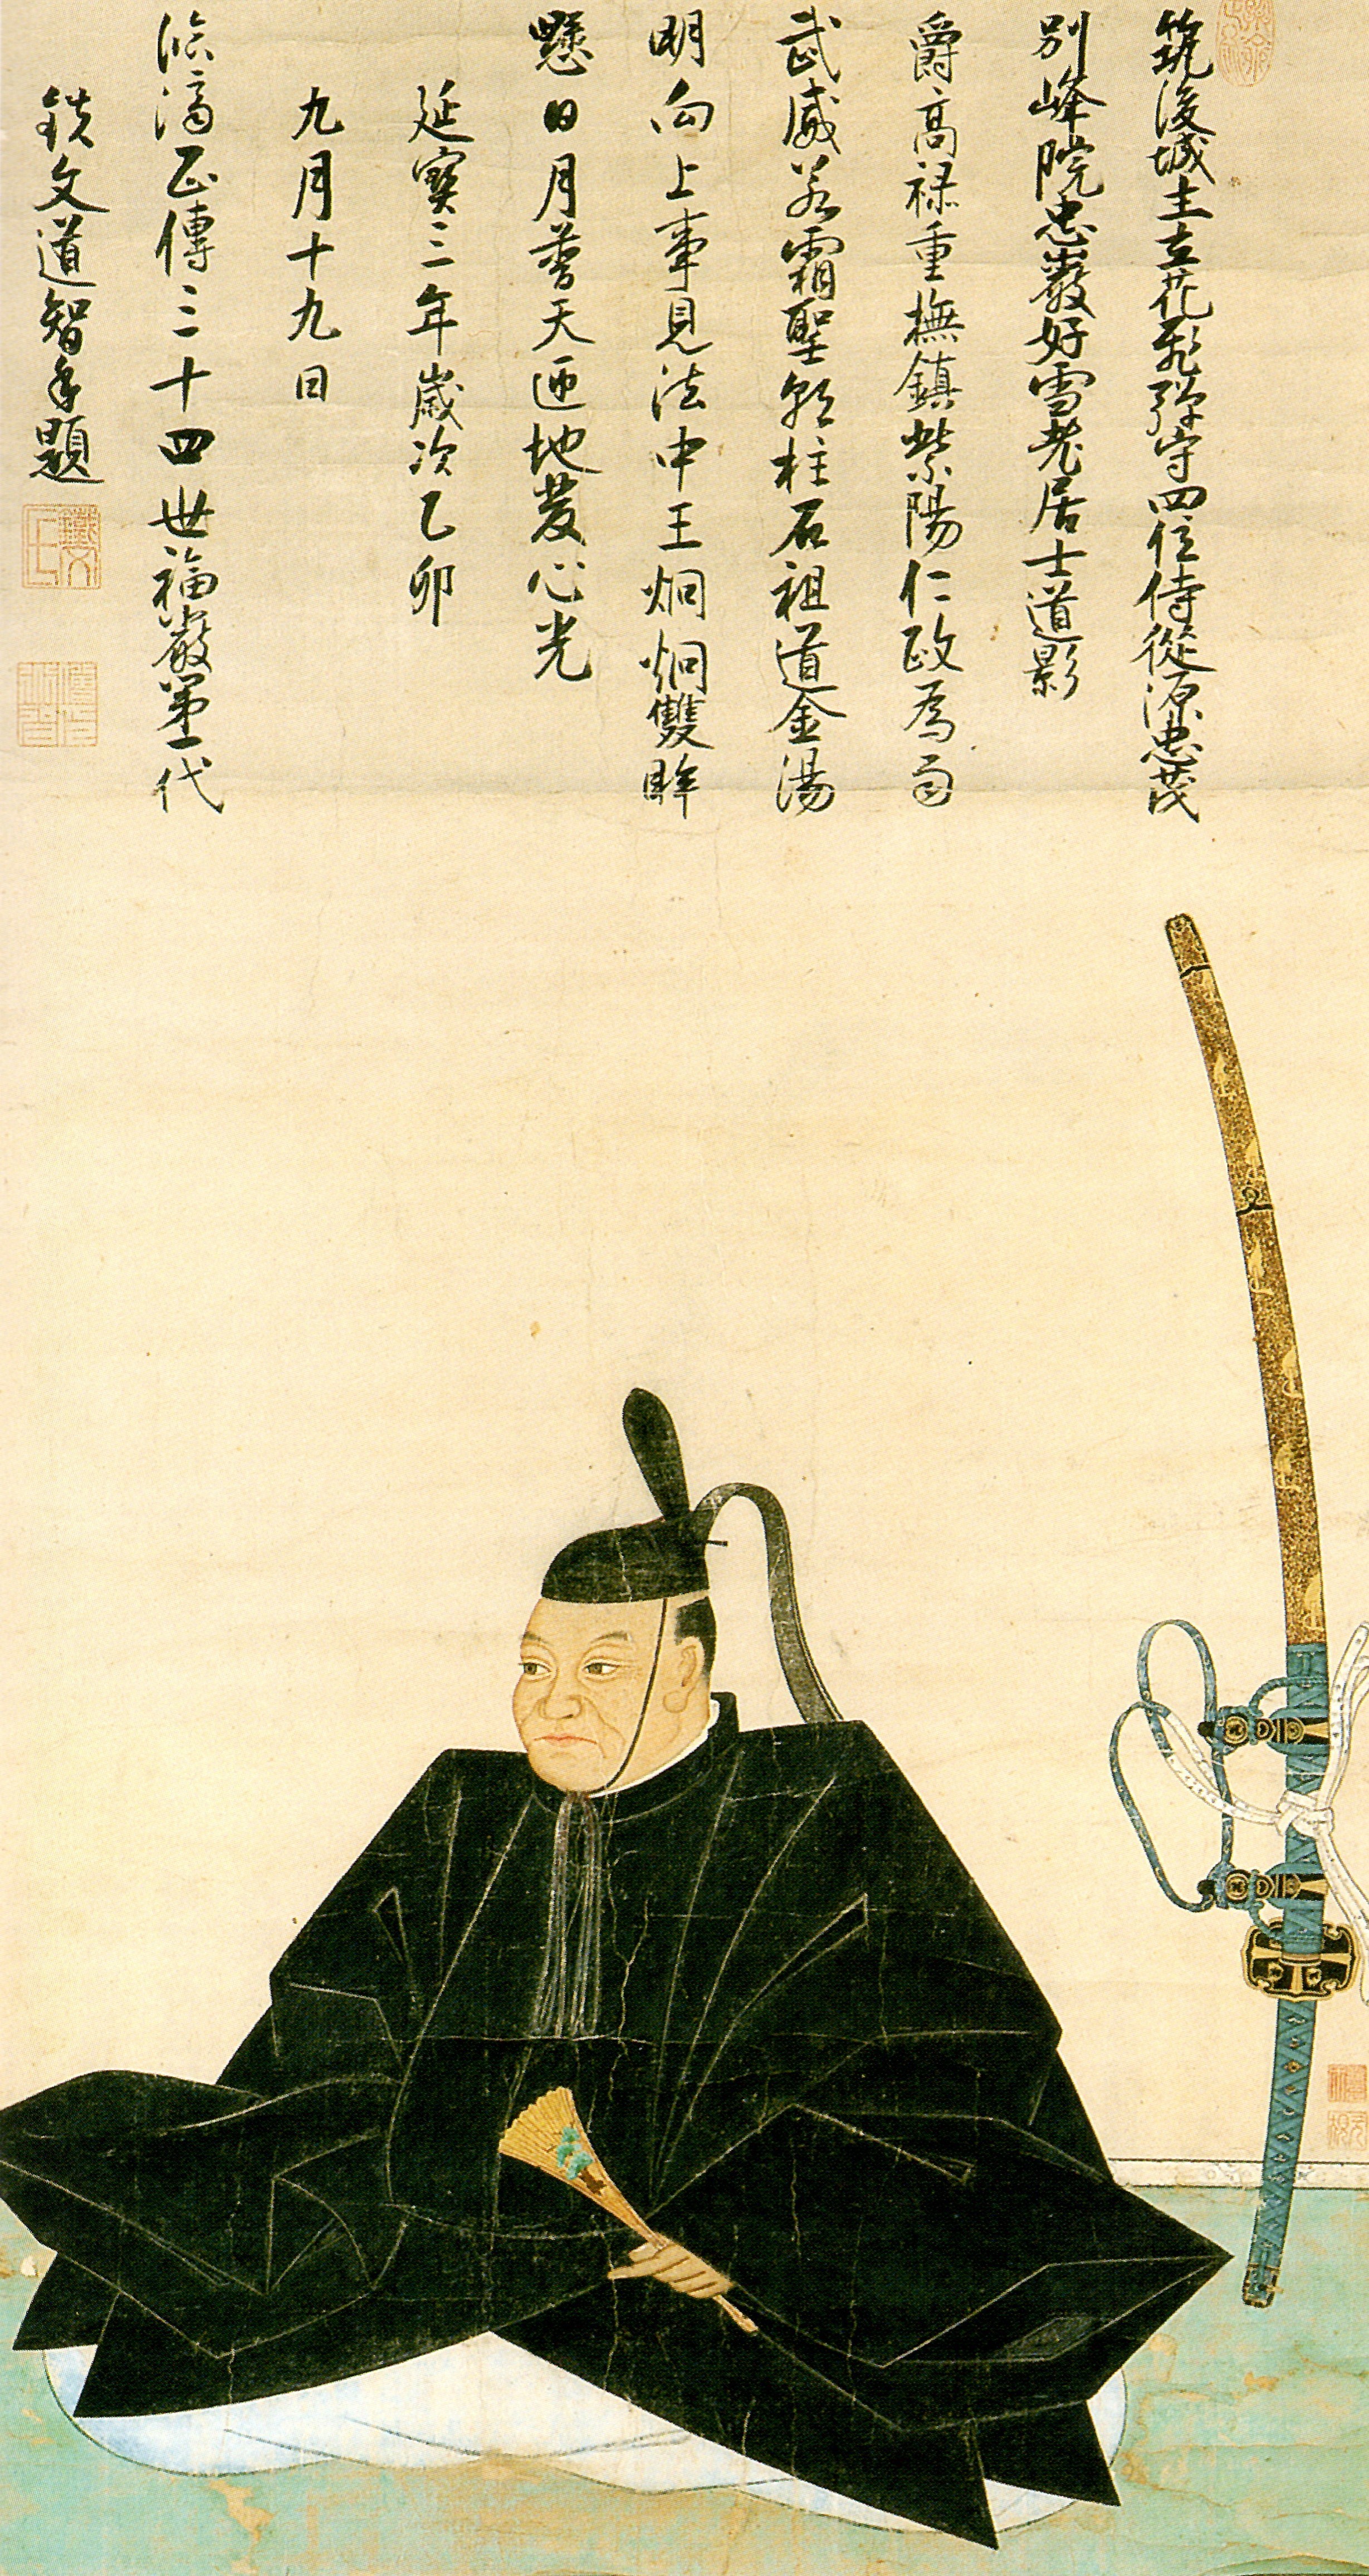 筑後城主立花飛彈守四位侍從源忠茂
別峰院忠巖好雪老居士道影
爵高禄重撫鎮紫陽仁政為雨
武威若霜聖朝柱石祖道金湯
明向上事見法中王炯炯雙眸
懸日月普天迊地發心光
延寶三年歳次乙卯
九月十九日
臨済正傳三十四世福巖第一代
鉄文道智手題